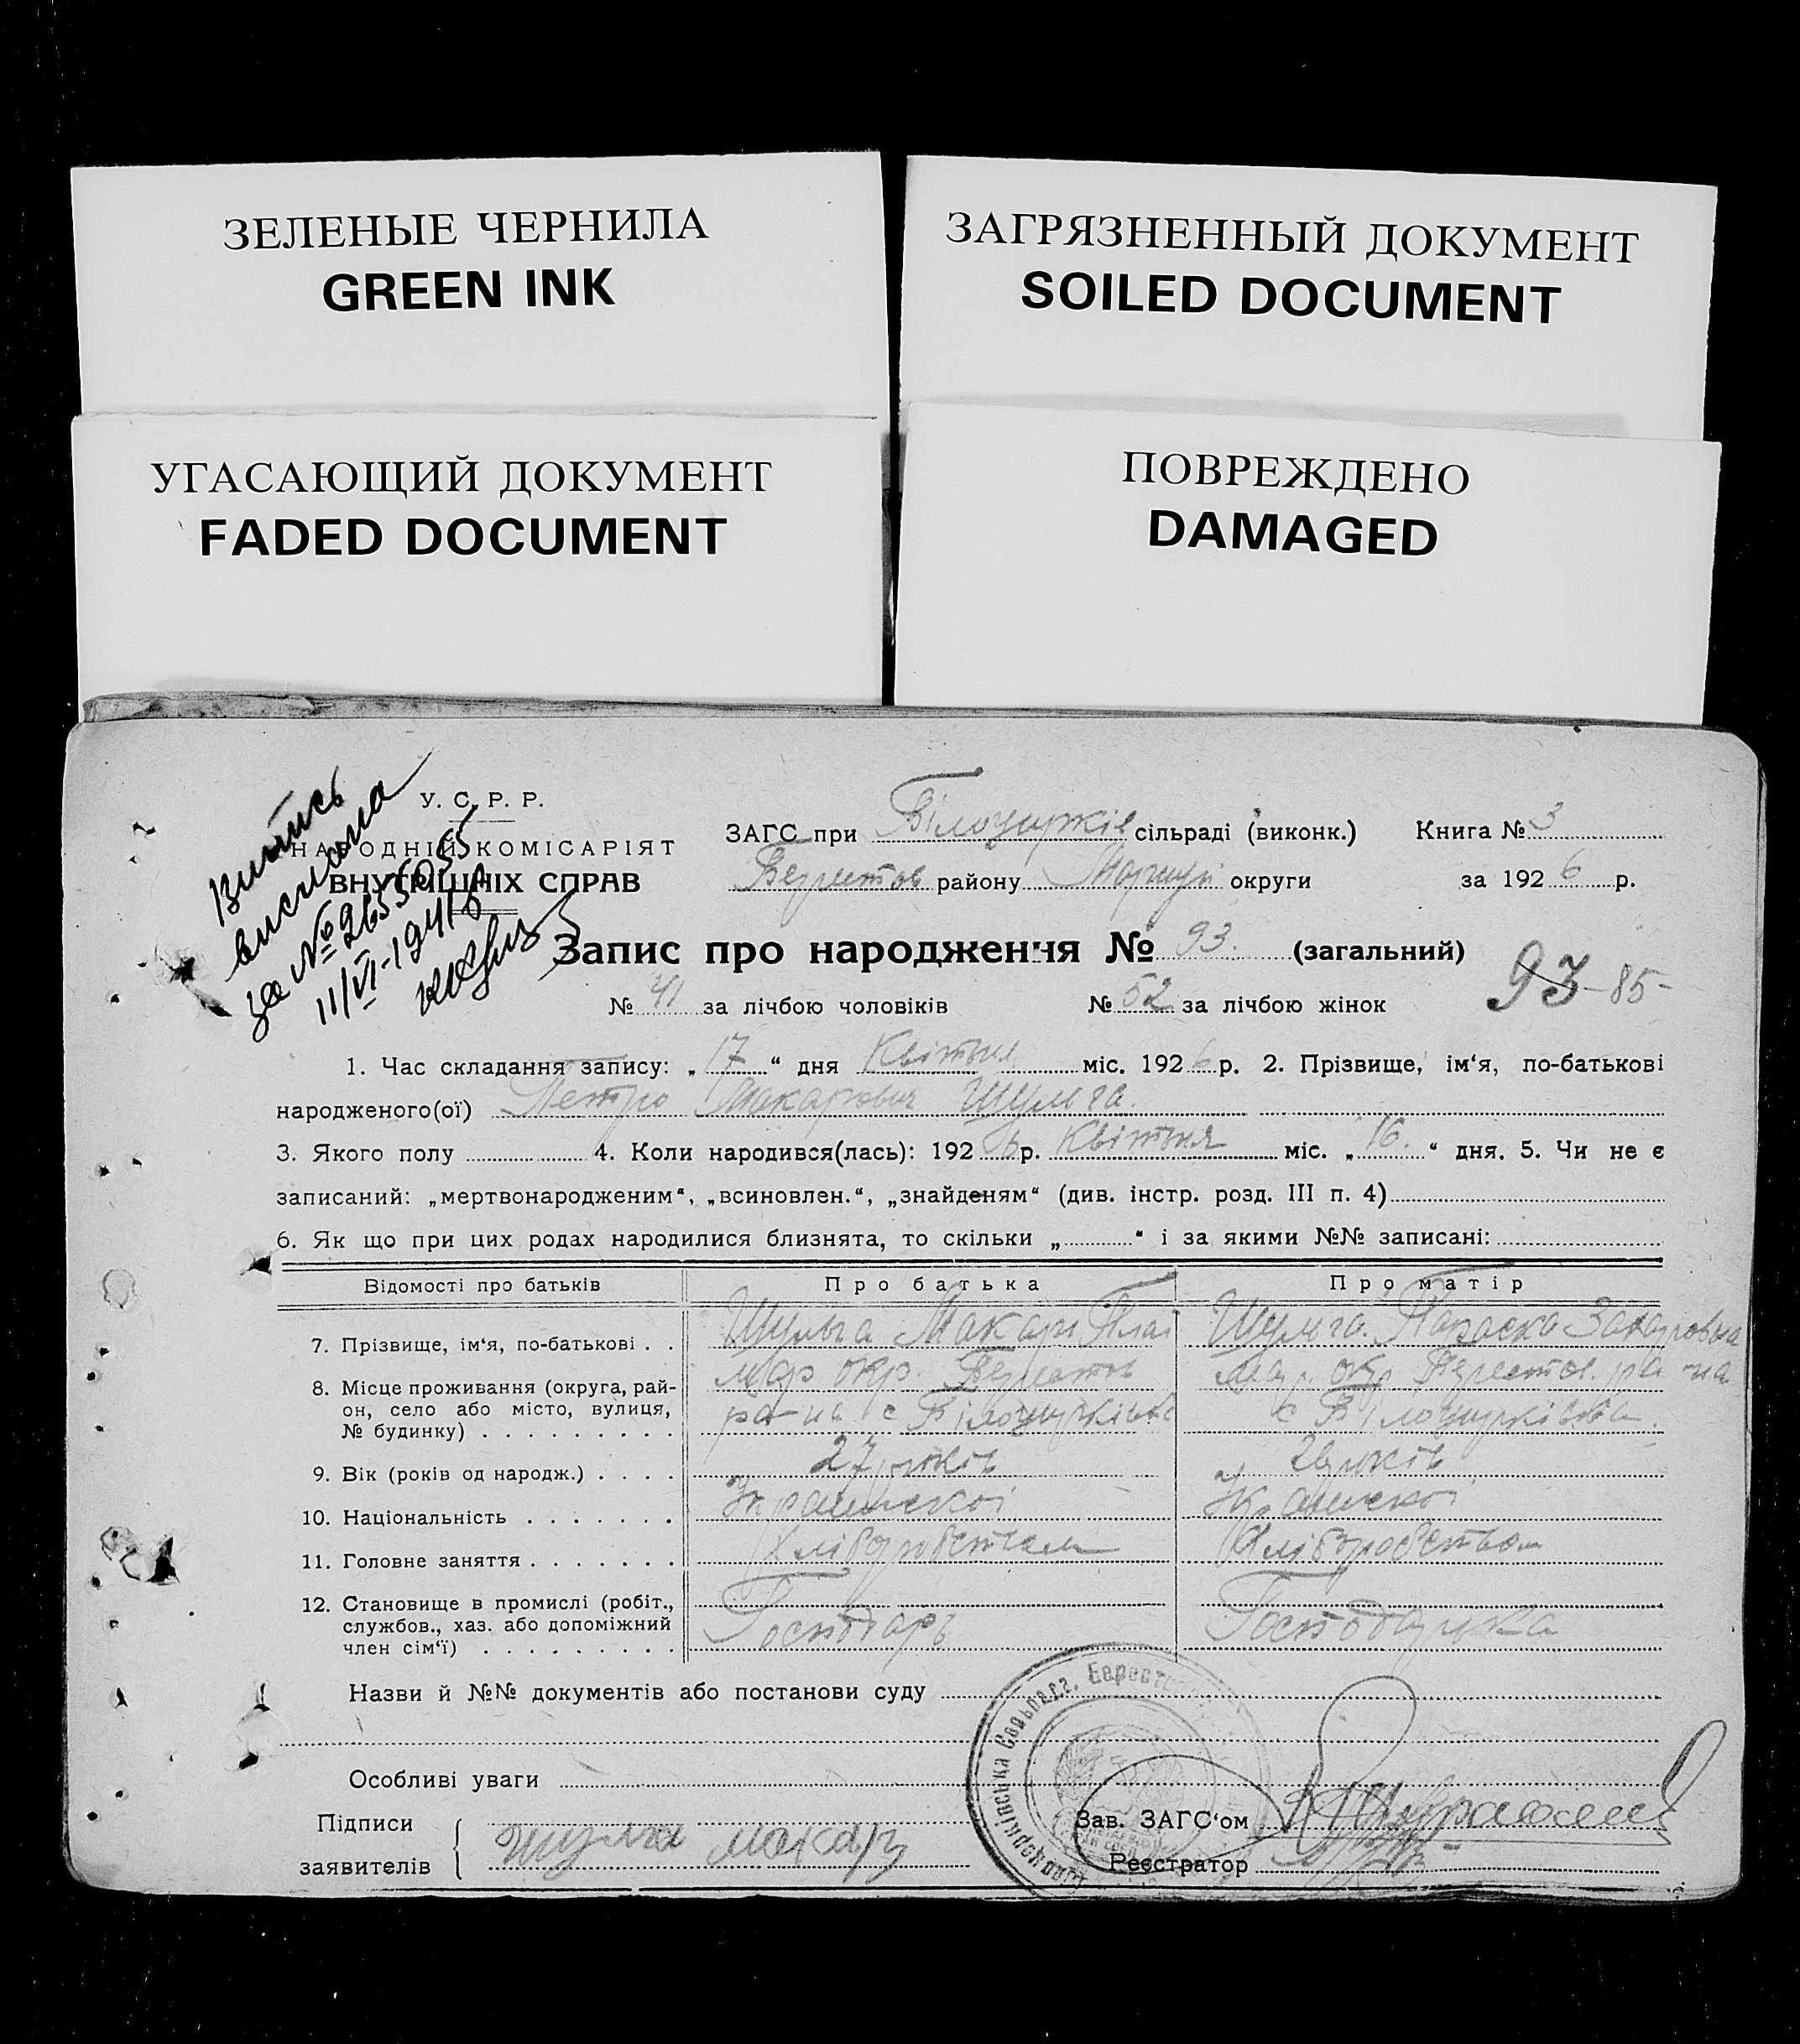 ЗЕЛЕНЫЕ ЧЕРНИЛА
GREEN INK
ЗАГРЯЗНЕННЫЙ ДОКУМЕНТ
SOILED DOCUMENT
УГАСАЮЩИЙ ДОКУМЕНТ
FADED DOCUMENT
ПОВРЕЖДЕНО
DAMAGED
Витись
вислана
за №
11/VI-1941
У. С. Р. Р.
НАРОДНІЙ КОМІСАРІЯТ
ВНУТРІШНІХ СПРАВ
ЗАГС при Білоцерків сільраді (виконк.) Книга № 3
Берестов району округи за 1926 р.
Запис про народження № 93. (загальний)
№ 41 за лічбою чоловіків № 52 за лічбою жінок 93 -85-
1. Час складання запису: „17“ дня Квітня міс. 1926 р. 2. Прізвище, ім‘я, по-батькові
народженого(ої) Петро Макарович Шульга.
3. Якого полу 4. Коли народився(лась): 1926 р. Квітня міс. „16.“ дня. 5. Чи не є
записаний: „мертвонародженим“, „всиновлен.“, „знайденям“ (див. інстр. розд. III п. 4)
6. Як що при цих родах народилися близнята, то скільки „ “ і за якими №№ записані:
Відомості про батьків Про батька Про матір
7. Прізвище, ім‘я, по-батькові . . Шульга Макар Шульга. Параска Захаровна
8. Місце проживання (округа, рай- Мар окр. Берестов Мар. окр Берестов. ра-на
он, село або місто, вулиця, ра-на с Білоцерківка с Білоцерківка.
№ будинку) . . . . . . . . .
9. Вік (років од народж.) . . . . 27 років років
10. Національність . . . . . . . Українскої Українскої
11. Головне заняття . . . . . . . Хліборобством Хліборобством
12. Становище в промислі (робіт.,
службов., хаз. або допоміжний Господарь Господарка
член сім‘ї) . . . . . . . . .
Назви й №№ документів або постанови суду
Особливі уваги
Підписи
заявителів Шульга Макар
Зав. ЗАГС‘ом
Реєстратор